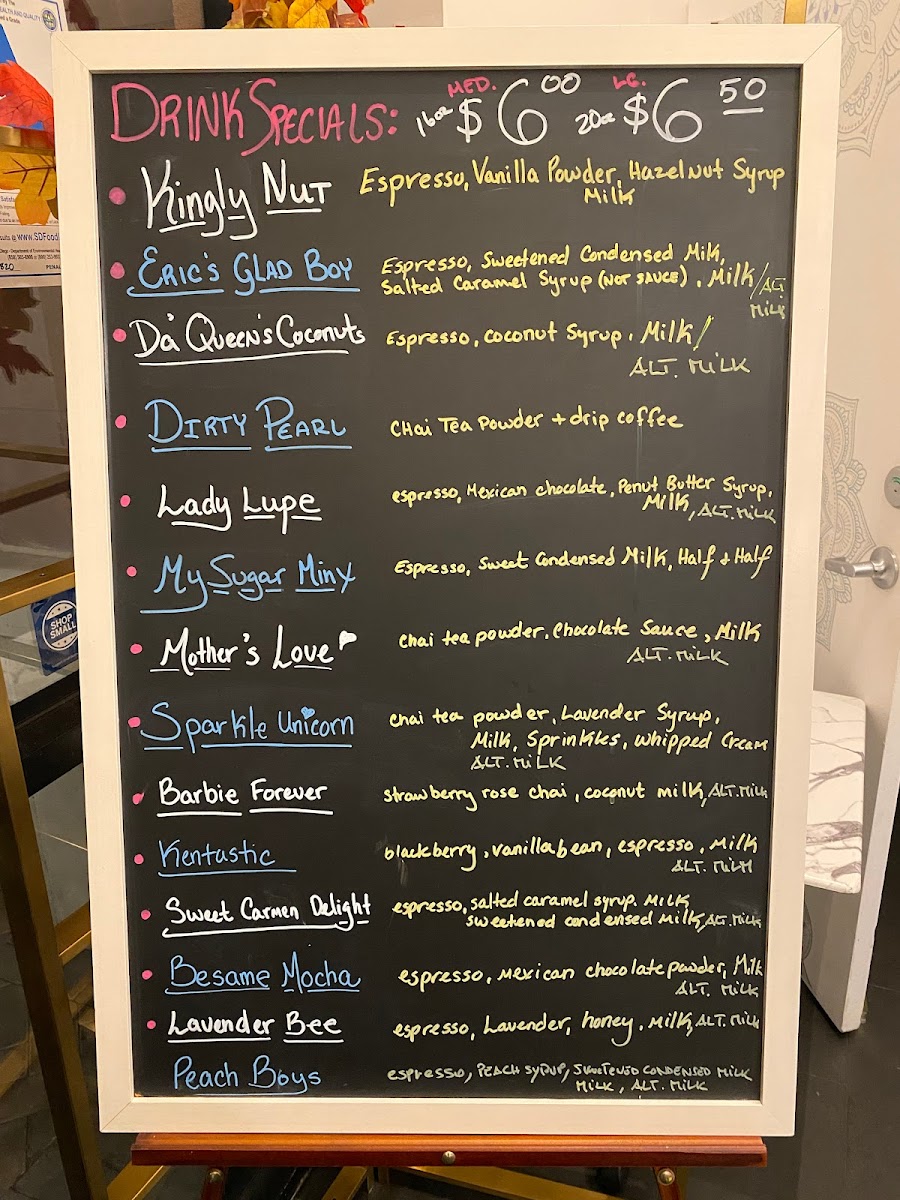 HEALTH AND QUALITY
DRINK SPECIALS: 16oz MED. $6 00 20oz LG. $6 50
Kingly Nut Espresso, Vanilla Powder, Hazelnut Syrup
Milk
Eric's Glad Boy Espresso, Sweetened Condensed Milk,
Salted Caramel Syrup (NOT SAUCE), Milk/ALT.
MiLK
Da' Queen's Coconuts Espresso, coconut Syrup, Milk/
ALT. MiLK
Dirty Pearl Chai Tea Powder + drip coffee
Lady Lupe espresso, Mexican chocolate, Penut Butter Syrup,
Milk, ALT. MiLK
My Sugar Minx Espresso, Sweet Condensed Milk, Half & Half
Mother's Love chai tea powder, Chocolate Sauce, Milk
ALT. MiLK
Sparkle Unicorn chai tea powder, Lavender Syrup,
Milk, Sprinkles, Whipped Cream
ALT. MiLK
Barbie Forever strawberry rose chai, coconut milk, ALT. MiLK
Kentastic blackberry, vanilla bean, espresso, Milk
ALT. MilH
Sweet Carmen Delight espresso, salted caramel syrup. Milk
sweetened condensed Milk, ALT. MiLK
Besame Mocha espresso, Mexican chocolate powder, Milk
ALT. MiLK
Lavender Bee espresso, Lavender, honey, Milk, ALT. MiLK
Peach Boys espresso, PEACH SYRUP, SWEETENED CONDENSED MILK
MILK, ALT. MILK
SHOP
SMALL